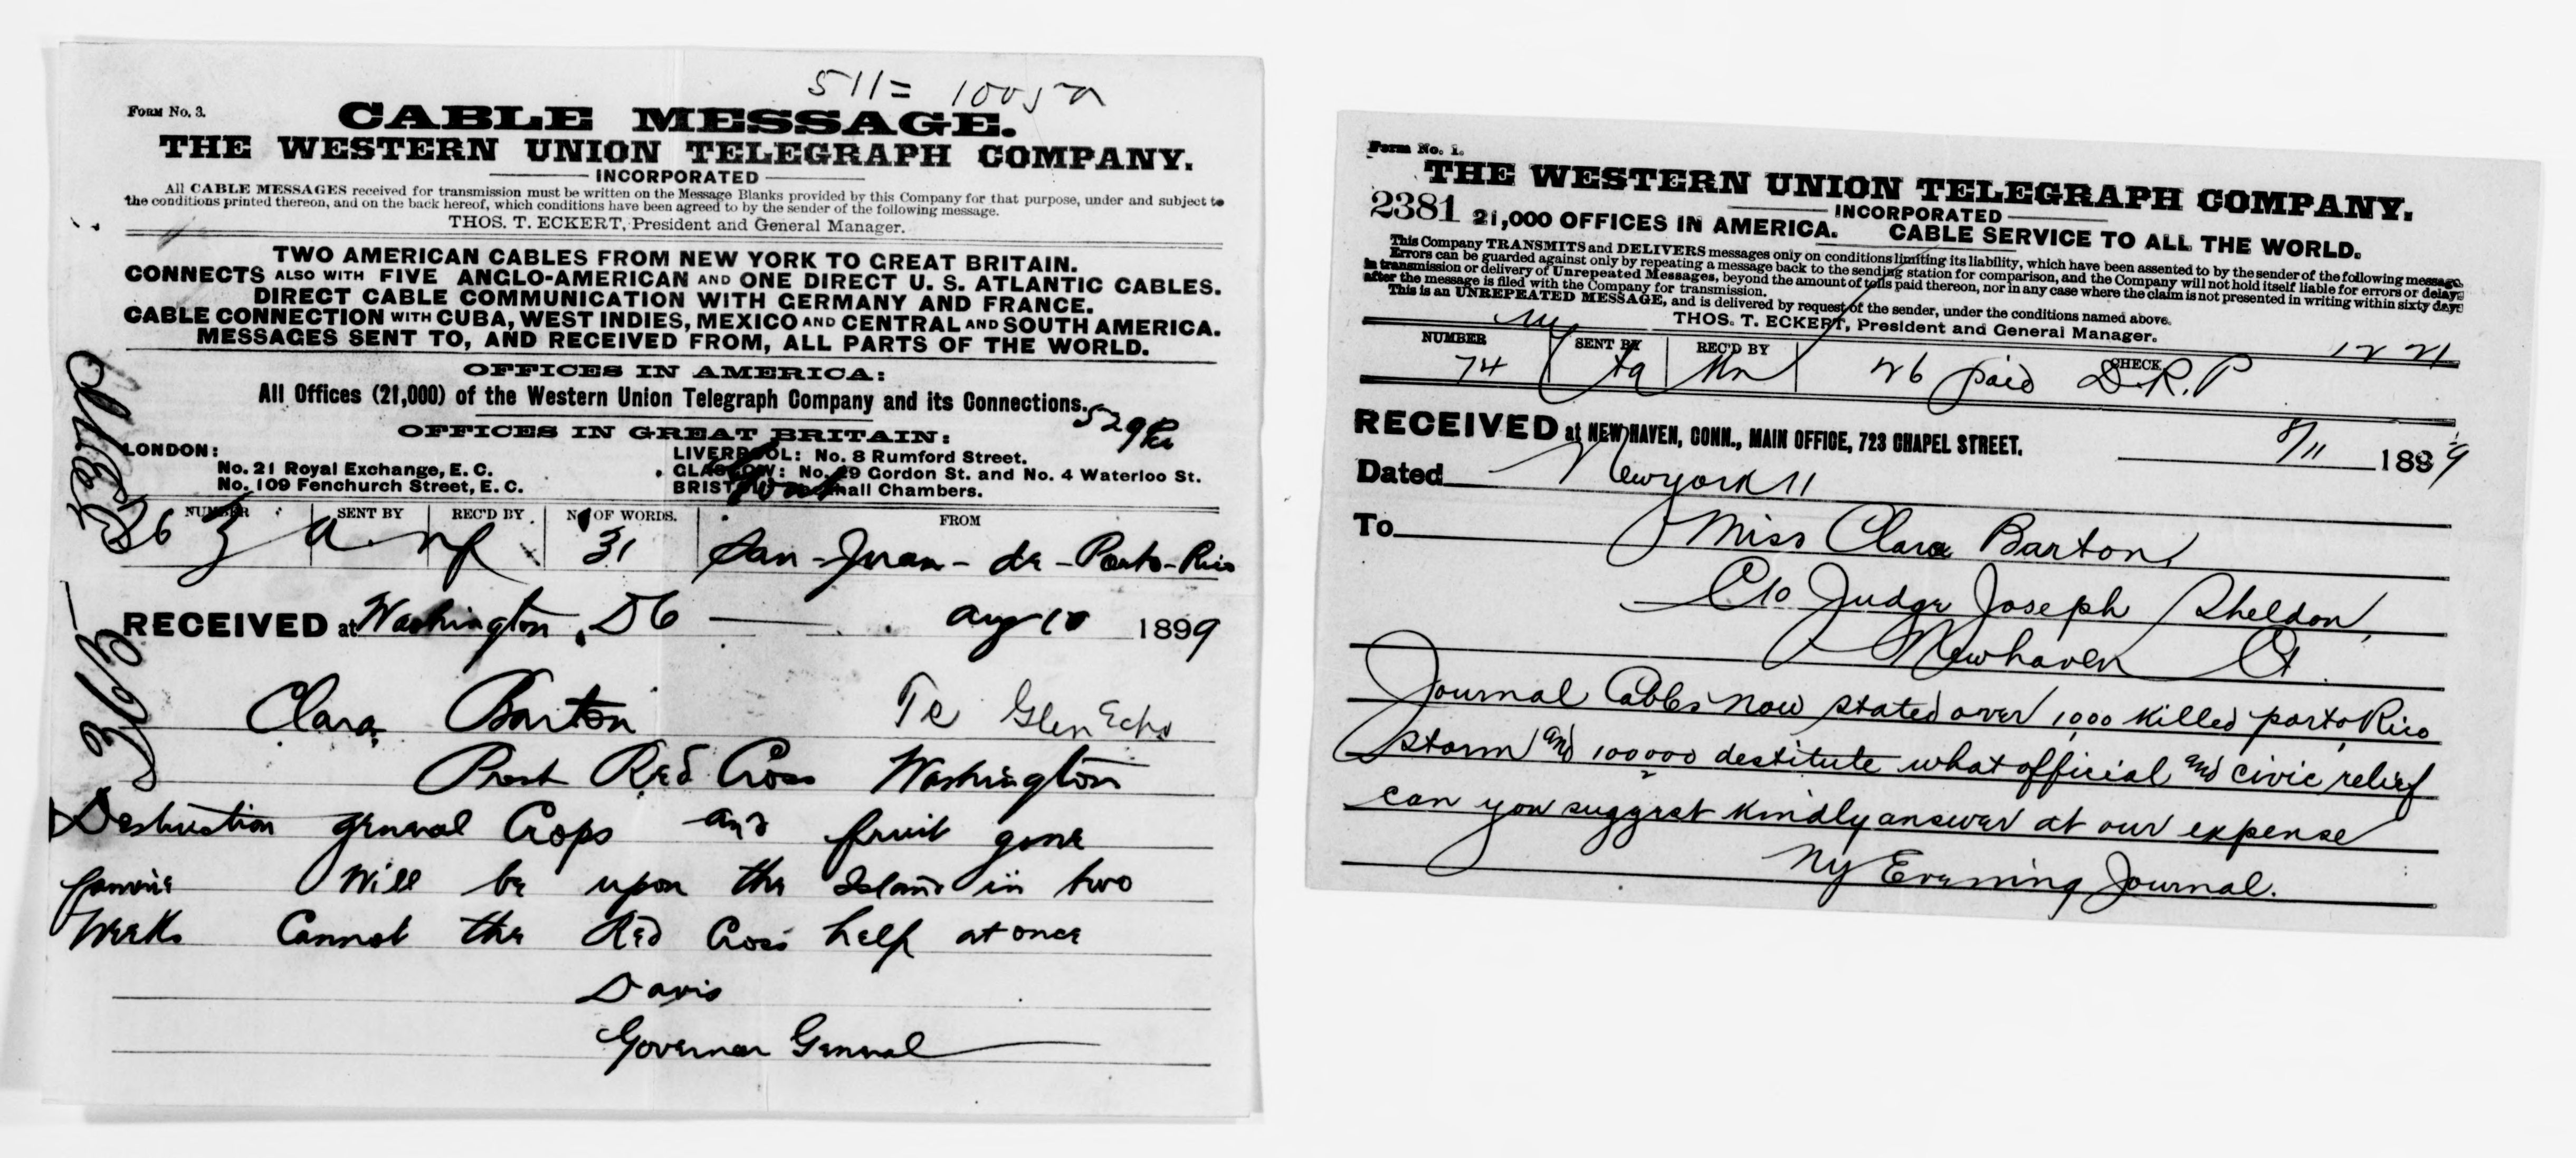 511=
Form No. 3.
CABLE MESSAGE.
THE WESTERN UNION TELEGRAPH COMPANY.
INCORPORATED
All CABLE MESSAGES received for transmission must be written on the Message Blanks provided by this Company for that purpose, under and subject to
the conditions printed thereon, and on the back hereof, which conditions have been agreed to by the sender of the following message.
THOS. T. ECKERT, President and General Manager.
TWO AMERICAN CABLES FROM NEW YORK TO GREAT BRITAIN.
CONNECTS ALSO WITH FIVE ANGLO-AMERICAN AND ONE DIRECT U. S. ATLANTIC CABLES.
DIRECT CABLE COMMUNICATION WITH GERMANY AND FRANCE.
CABLE CONNECTION WITH CUBA, WEST INDIES, MEXICO AND CENTRAL AND SOUTH AMERICA.
MESSAGES SENT TO, AND RECEIVED FROM, ALL PARTS OF THE WORLD.
OFFICES IN AMERICA:
All Offices (21,000) of the Western Union Telegraph Company and its Connections.
OFFICES IN GREAT BRITAIN:
LONDON:
No. 21 Royal Exchange, E. C.
No. 109 Fenchurch Street, E. C.
LIVERPOOL: No. 8 Rumford Street.
GLASGOW: No. 29 Gordon St. and No. 4 Waterloo St.
Chambers.
NUMBER SENT BY REC'D BY NO OF WORDS. FROM
31 San-Juan-de-Porto-Rico
RECEIVED at Washington, DC Aug 10 1899
Clara Barton To Glen Echo
Prest Red Cross Washington
Destruction general Crops and fruit gone
famine Will be upon the Island in two
Weeks Cannot the Red Cross help at once
Davis
Governor General
Form No. 1.
THE WESTERN UNION TELEGRAPH COMPANY.
INCORPORATED
2381 21,000 OFFICES IN AMERICA. CABLE SERVICE TO ALL THE WORLD.
This Company TRANSMITS and DELIVERS messages only on conditions limiting its liability, which have been assented to by the sender of the following message.
Errors can be guarded against only by repeating a message back to the sending station for comparison, and the Company will not hold itself liable for errors or delays
in transmission or delivery of Unrepeated Messages, beyond the amount of tolls paid thereon, nor in any case where the claim is not presented in writing within sixty days
after the message is filed with the Company for transmission.
This is an UNREPEATED MESSAGE, and is delivered by request of the sender, under the conditions named above.
THOS. T. ECKERT, President and General Manager.
NUMBER SENT BY REC'D BY CHECK
74 26 paid D.R.P
RECEIVED at NEW HAVEN, CONN., MAIN OFFICE, 723 CHAPEL STREET. 8/11 1899
Dated Newyork 11
To Miss Clara Barton,
C/o Judge Joseph Sheldon,
Newhaven Ct.
Journal Cables now stated over 1,000 killed porto Rico
storm and 100,000 destitute what official and civic relief
can you suggest kindly answer at our expense
NY Evening Journal.